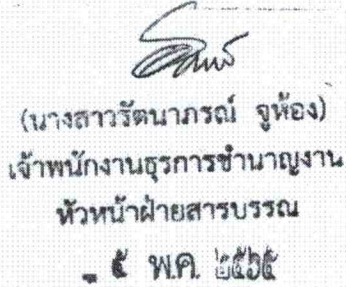 (นางสาวรัตนาภรณ์ จูห้อง)
เจ้าพนักงานธุรการชำนาญงาน
หัวหน้าฝ่ายสารบรรณ
- ๕ พ.ค. ๒๕๖๕